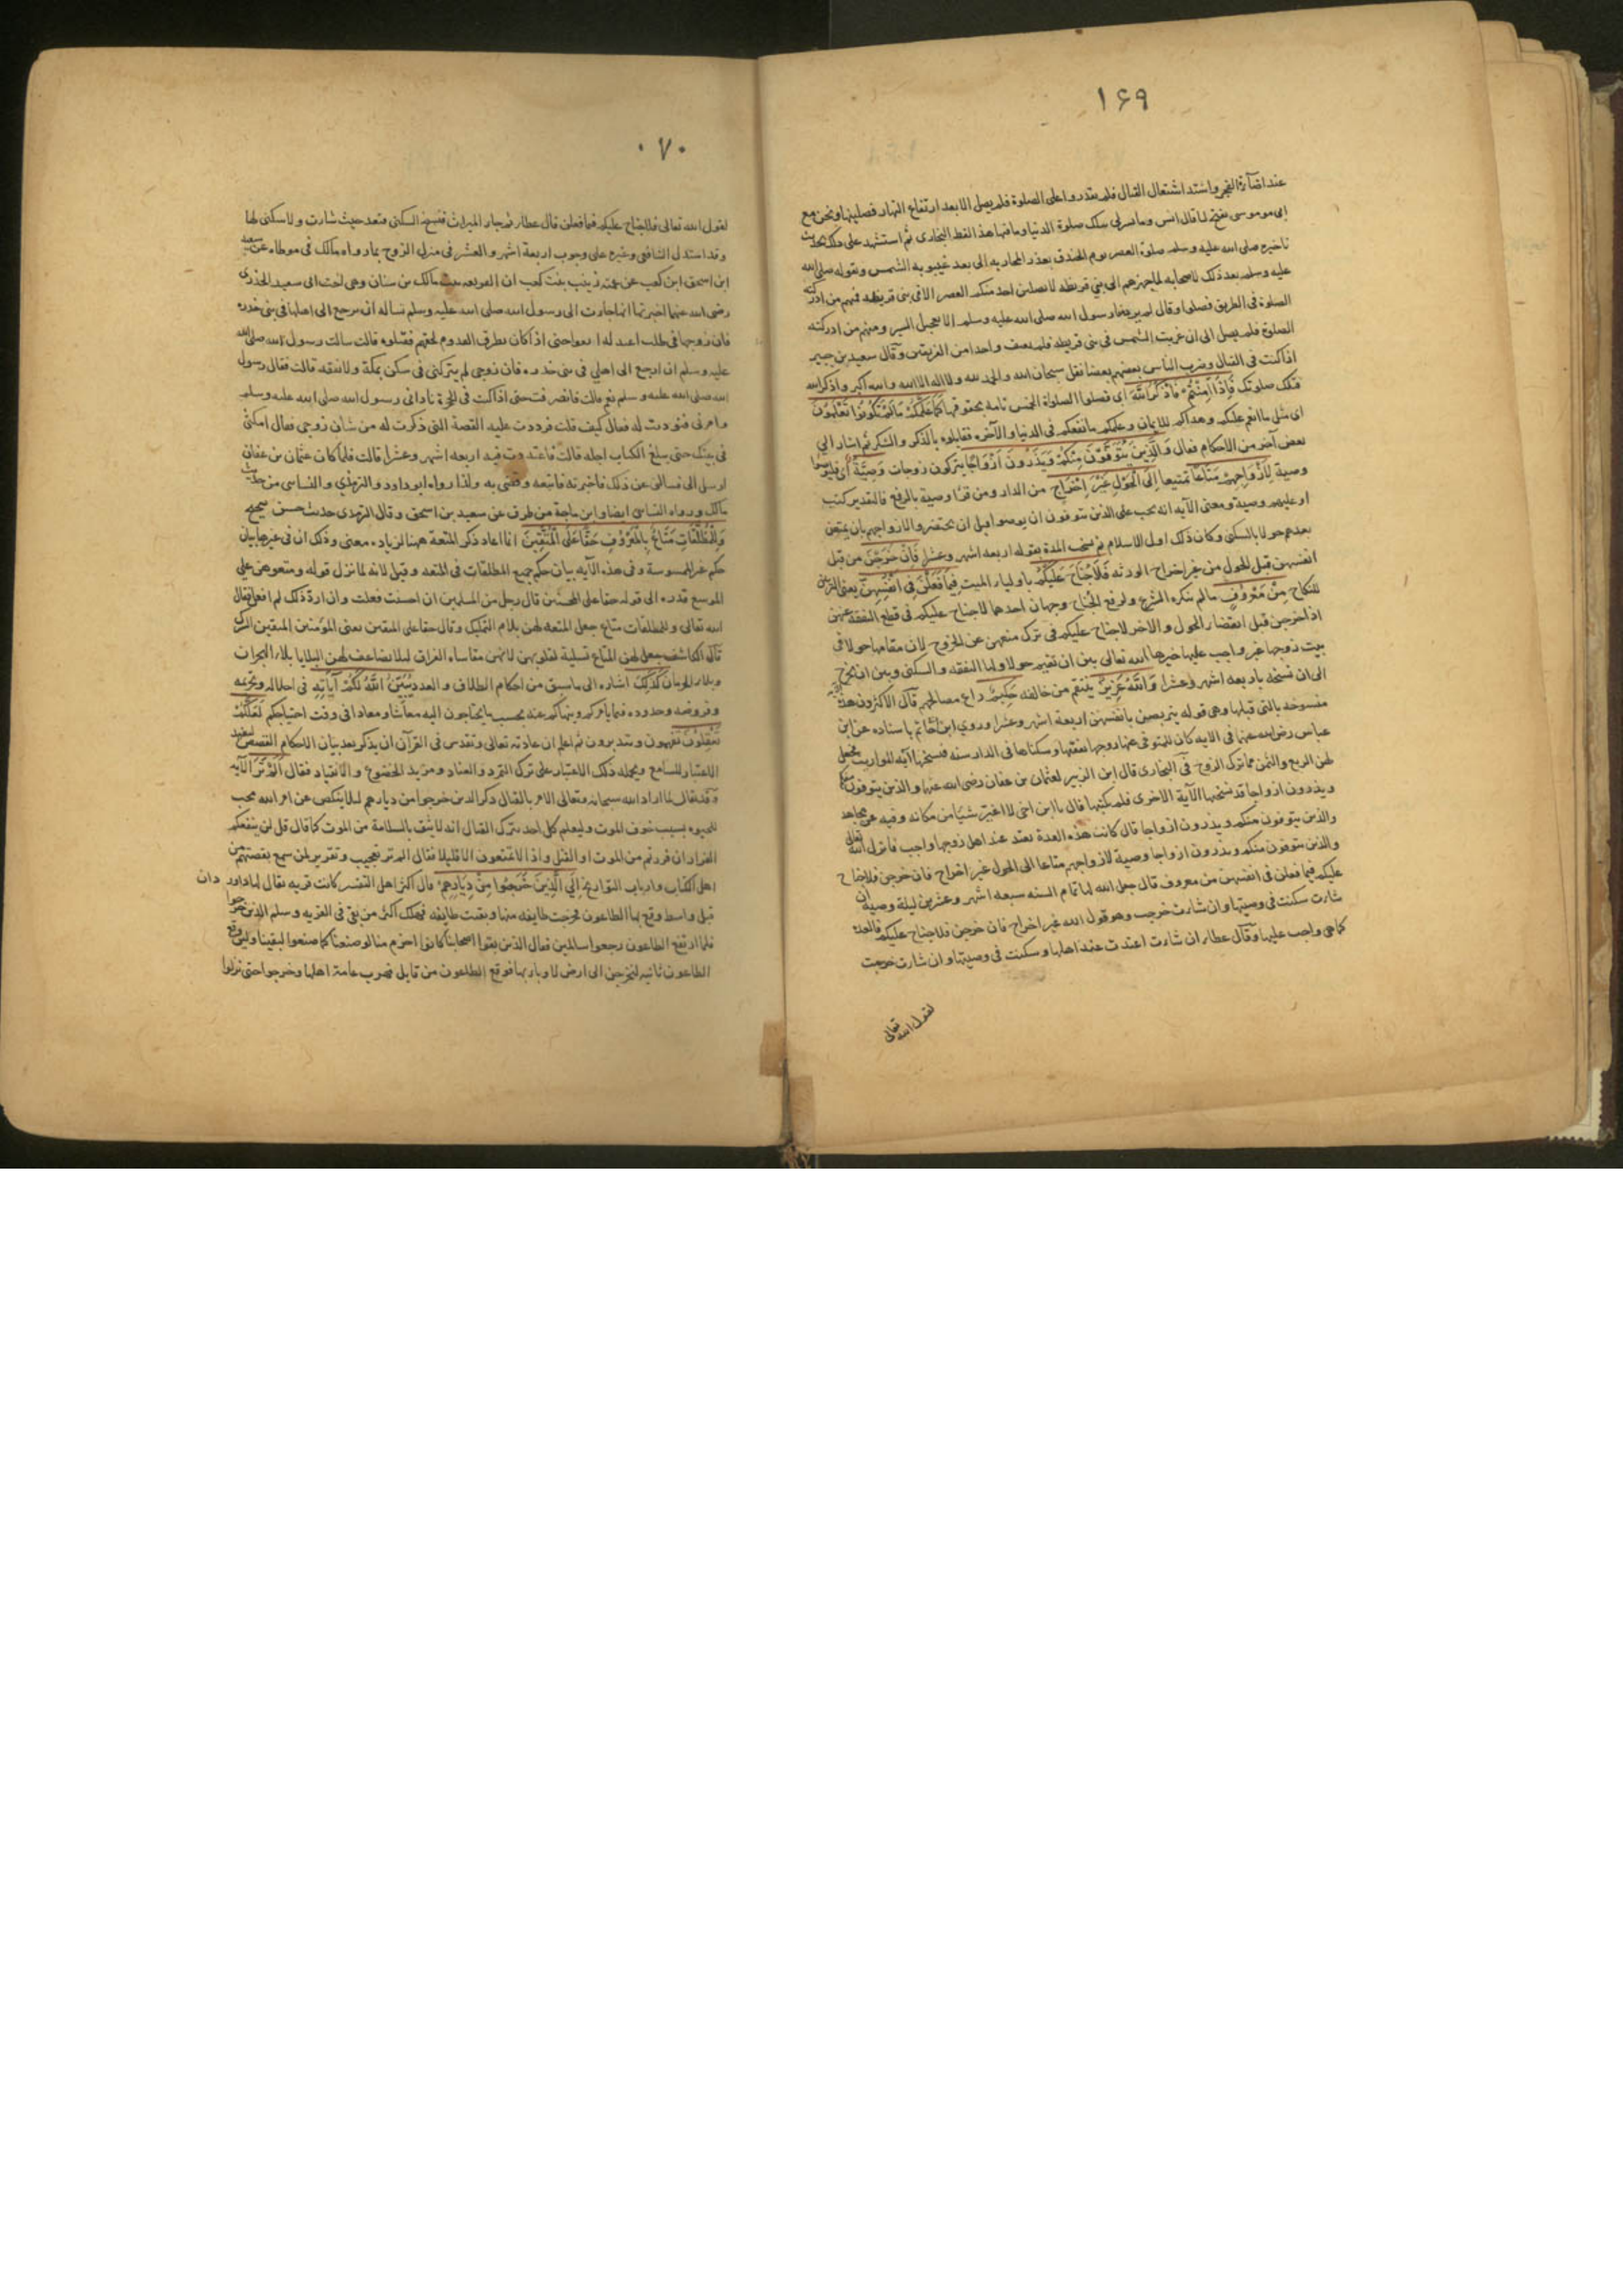 ١٦٩
عند اضآءة الفجر واشتد اشتعال القتال فلم يقدروا على الصلوة فلم يصل الا بعد ارتفاع النهار فصليتها ونحن مع
ابى موسى ففتح لنا قال انس وما يسرنى بتلك صلوة الدنيا وما فيها هذا لفظ البخارى ثم استشهد على ذلك بحديث
تاخيره صلى الله عليه وسلم صلوة العصر يوم الخندق بعذر المحاربه الى بعد غيبوبه الشمس وبقوله صلى الله
عليه وسلم بعد ذلك لاصحابه لما جهزهم الى بني قريظه لا يصلين احد منكم العصر الا فى بنى قريظه فمنهم من ادركته
الصلوة فى الطريق فصلوا وقال لم يرد منا رسول الله صلى الله عليه وسلم الا تعجيل السير ومنهم من ادركته
الصلوة فلم يصل الى ان غربت الشمس فى بنى قريظه فلم يعنف واحدا من الفريقين وقال سعيد بن جبير
اذا كنت فى القتال وضرب الناس بعضهم بعضا فقل سبحان الله والحمد لله ولا اله الا الله والله اكبر واذكر الله
فتلك صلوتك فَإِذَا أَمِنْتُمْ فَاذْكُرُوا اللَّهَ اى فصلوا الصلوة الخمس تامه بحقوقها كَمَا عَلَّمَكُمْ مَا لَمْ تَكُونُوا تَعْلَمُونَ
اى مثل ما انعم عليكم وهداكم للايمان وعلمكم ما نفعكم فى الدنيا والآخره فقابلوه بالذكر والشكر ثم اشار الى
بعض آخر من الاحكام فقال وَالَّذِينَ يُتَوَفَّوْنَ مِنْكُمْ وَيَذَرُونَ أَزْوَاجًا يتركون زوجات وَصِيَّةً اى فليوصوا
وصية لِأَزْوَاجِهِمْ مَتَاعًا تمتيعا إِلَى الْحَوْلِ غَيْرَ إِخْرَاجٍ من الدار ومن قرأ وصية بالرفع فالتقدير كتب
او عليهم وصية ومعنى الآيه انه يجب على الذين يتوفون ان يوصوا قبل ان يحتضروا لازواجهم بان يمتعن
بعدهم حولا بالسكنى وكان ذلك اول الاسلام ثم نسخت المدة بقوله اربعه اشهر وعشرا فَإِنْ خَرَجْنَ من قبل
انفسهن قبل الحول من غير اخراج الورثه فَلَا جُنَاحَ عَلَيْكُمْ يا اوليا الميت فِيمَا فَعَلْنَ فِي أَنْفُسِهِنَّ يعنى التزين
للنكاح مِنْ مَعْرُوفٍ مالم ينكره الشرع ولرفع الجناح وجهان احدهما لا جناح عليكم فى قطع النفقه عنهن
اذا خرجن قبل انقضاء الحول والاخر لا جناح عليكم فى ترك منعهن عن الخروج لان مقامها حولا فى
بيت زوجها غير واجب عليها خيرها الله تعالى بين ان تقيم حولا ولها النفقه والسكنى وبين ان تخرج
الى ان نسخه باربعه اشهر وعشرا وَاللَّهُ عَزِيزٌ ينتقم من خالفه حَكِيمٌ راع مصالحهم قال الاكثرون هذه
منسوخه بالتى قبلها وهى قوله يتربصن بانفسهن اربعة اشهر وعشرا وروى ابن ابى حاتم باسناده عن ابن
عباس رضى الله عنهما فى الايه كان للمتوفى عنها زوجها نفقتها وسكناها فى الدار سنه فنسختها آيه المواريث فجعل
لهن الربع والثمن مما ترك الزوج فى البخارى قال ابن الزبير لعثمان بن عفان رضى الله عنهما والذين يتوفون منكم
ويذرون ازواجا قد نسختها الآية الاخرى فلم تكتبها قال يا ابن اخى لا اغير شيئا من مكانه وفيه عن مجاهد
والذين يتوفون منكم ويذرون ازواجا قال كانت هذه العدة تعتد عند اهل زوجها واجب فانزل الله تعالى
والذين يتوفون منكم ويذرون ازواجا وصية لازواجهم متاعا الى الحول غير اخراج فان خرجن فلا جناح
عليكم فيما فعلن فى انفسهن من معروف قال جعل الله لها تمام السنه سبعه اشهر وعشرين ليلة وصية ان
شاءت سكنت فى وصيتها وان شاءت خرجت وهو قول الله غير اخراج فان خرجن فلا جناح عليكم فالعدة
كما هى واجب عليها وقال عطاء ان شاءت اعتدت عند اهلها وسكنت فى وصيتها وان شاءت خرجت
لقول الله تعالى
٠٧٠
لقول الله تعالى فلا جناح عليكم فيما فعلن قال عطاء ثم جاء الميراث فنسخ السكنى فتعتد حيث شاءت ولا سكنى لها
وقد استدل الشافعى وغيره على وجوب اربعة اشهر والعشر فى منزل الزوج بما رواه مالك فى موطاه عن سعد
ابن اسحق ابن كعب عن عمته زينب بنت كعب ان الفريعه بنت مالك بن سنان وهى اخت ابى سعيد الخدرى
رضى الله عنهما اخبرتها انها جاءت الى رسول الله صلى الله عليه وسلم تساله ان ترجع الى اهلها فى بنى خدره
فان زوجها فى طلب اعبد له ابقوا حتى اذا كان بطرف القدوم لحقهم فقتلوه قالت سالت رسول الله صلى الله
عليه وسلم ان ارجع الى اهلى فى بنى خدره فان زوجى لم يتركنى فى سكن يملكه ولا نفقه قالت فقال رسول
الله صلى الله عليه وسلم نعم قالت فانصرفت حتى اذا كنت فى الحجرة نادانى رسول الله صلى الله عليه وسلم
وامرنى فنوديت له فقال كيف قلت فرددت عليه القصة التى ذكرت له من شان زوجى فقال امكثى
فى بيتك حتى يبلغ الكتاب اجله قالت فاعتددت فيه اربعه اشهر وعشرا قالت فلما كان عثمان بن عفان
ارسل الى فسالنى عن ذلك فاخبرته فاتبعه وقضى به ولذا رواه ابو داود والترمذي والنسائى من حديث
مالك ورواه النسائى ايضا وابن ماجة من طرق عن سعيد بن اسحق وقال الترمذى حديث حسن صحيح
وَلِلْمُطَلَّقَاتِ مَتَاعٌ بِالْمَعْرُوفِ حَقًّا عَلَى الْمُتَّقِينَ انما اعاد ذكر المتعة ههنا لزيادة معنى وذلك ان فى غيرها بيان
حكم غير الممسوسة وفى هذه الآيه بيان حكم جميع المطلقات فى المتعه وقيل لانه لما نزل قوله ومتعوهن على
الموسع قدره الى قوله حقا على المحسنين قال رجل من المسلمين ان احسنت فعلت وان ارد ذلك لم افعل فقال
الله تعالى وللمطلقات متاع جعل المتعه لهن بلام التمليك وقال حقا على المتقين يعنى المؤمنين المتقين الشرك
قال الكاشف جعل لهن المتاع تسلية لقلوبهن لانهن مقاساه الفراق لئلا يضاعف لهن البلايا بلاء الهجران
وبلاء الحرمان كَذَلِكَ اشاره الى ما سبق من احكام الطلاق والعدد يُبَيِّنُ اللَّهُ لَكُمْ آيَاتِهِ فى احلاله وتحريمه
وفروضه وحدوده فيما يامركم وينهاكم عنه بحسب ما يحتاجون اليه معاشا ومعادا فى وقت احتياجكم لَعَلَّكُمْ
تَعْقِلُونَ تفهمون وتتدبرون ثم اعلم ان عادته تعالى وتقدس فى القرآن ان يذكر بعد بيان الاحكام القصص ليفيد
الاعتبار للسامع ويحمله ذلك الاعتبار على ترك التمرد والعناد ومزيد الخضوع والانقياد فقال أَلَمْ تَرَ الآيه
وقد يقال لما اراد الله سبحانه وتعالى الامر بالقتال ذكر الذين خرجوا من ديارهم لئلا ينكص عن امر الله بحب
للحيوه بسبب خوف الموت وليعلم كل احد بترك القتال انه لا يثق بالسلامة من الموت كما قال قل لن ينفعكم
الفرار ان فررتم من الموت او القتل واذا لا تمتعون الا قليلا فقال الم تر تعجيب وتقرير لمن سمع بقصتهم من
اهل الكتاب وارباب التواريخ إِلَى الَّذِينَ خَرَجُوا مِنْ دِيَارِهِمْ قال اكثر اهل التفسير كانت قريه يقال لها داور دان
قبل واسط وقع بها الطاعون فخرجت طايفه منها وبقيت طايفه فهلك اكثر من بقى فى القريه وسلم الذين خرجوا
فلما ارتفع الطاعون رجعوا سالمين فقال الذين بقوا اصحابنا كانوا احزم منا لو صنعنا كما صنعوا لبقينا ولئن وقع
الطاعون ثانيه لنخرجن الى ارض لا وباء بها فوقع الطاعون من قابل فهرب عامة اهلها وخرجوا حتى نزلوا